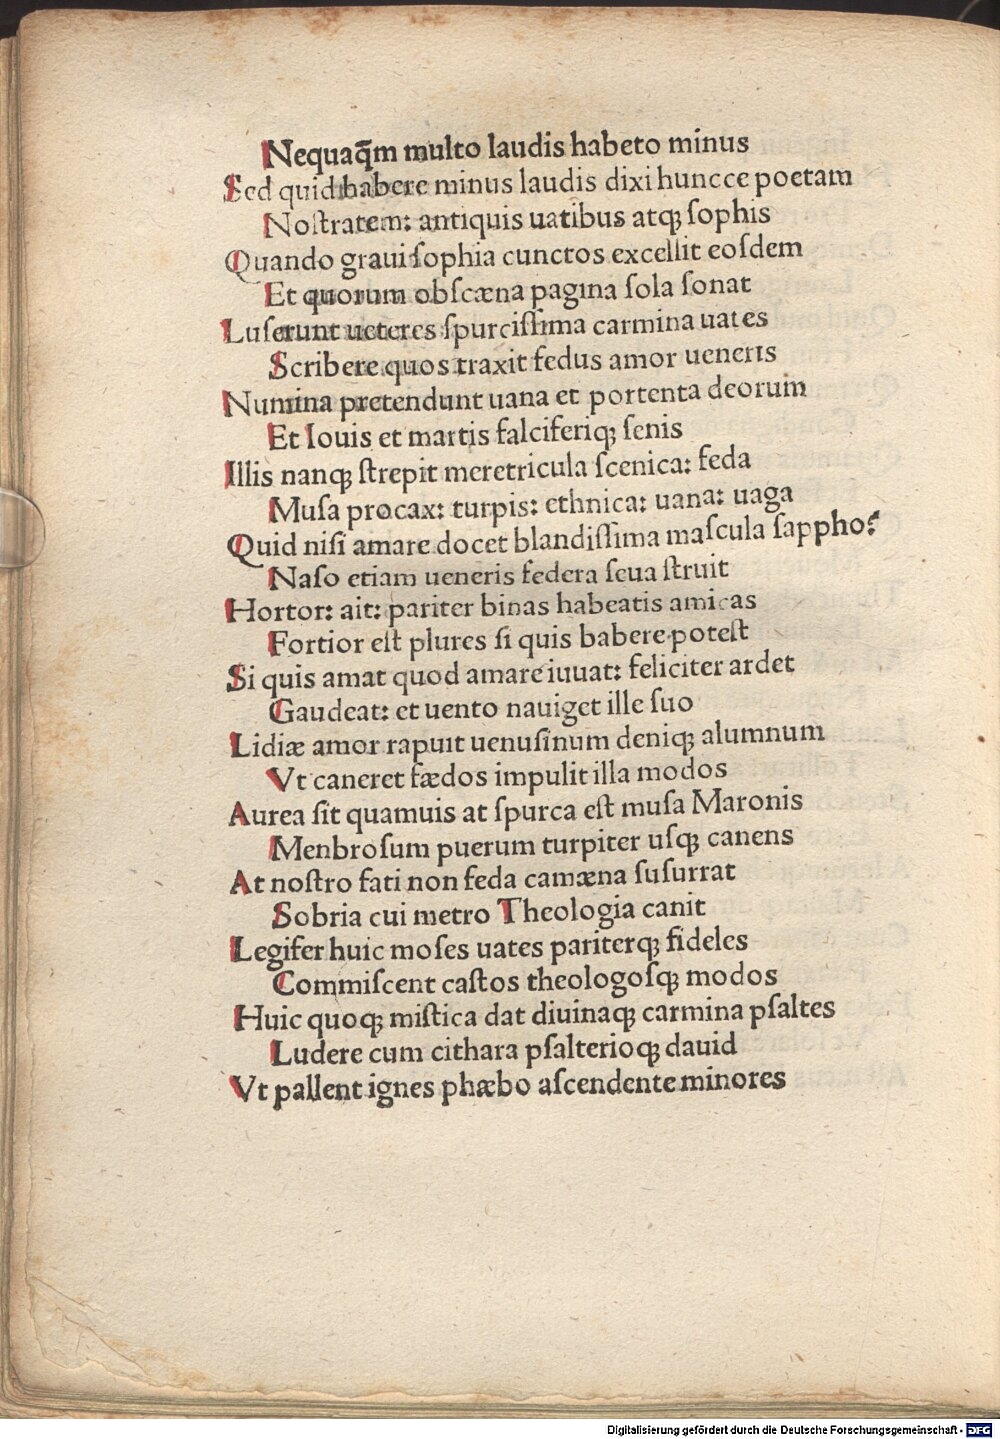 Nequaq̄m multo laudis habeto minus
Sed quid habere minus laudis dixi huncce poetam
Noſtratem: antiquis uatibus atqꝫ ſophis
Quando graui ſophia cunctos excellit eoſdem
Et quorum obſcæna pagina ſola ſonat
Luſerunt ueteres ſpurciſſima carmina uates
Scribere quos traxit fedus amor ueneris
Numina pretendunt uana et portenta deorum
Et Iouis et martis falciferiqꝫ ſenis
Illis nanqꝫ ſtrepit meretricula ſcenica: feda
Muſa procax: turpis: ethnica: uana: uaga
Quid niſi amare docet blandiſſima maſcula ſappho?
Naſo etiam ueneris federa ſeua ſtruit
Hortor: ait: pariter binas habeatis amicas
Fortior eſt plures ſi quis babere poteſt
Si quis amat quod amare iuuat: feliciter ardet
Gaudeat: et uento nauiget ille ſuo
Lidiæ amor rapuit uenuſinum deniqꝫ alumnum
Vt caneret fædos impulit illa modos
Aurea ſit quamuis at ſpurca eſt muſa Maronis
Menbroſum puerum turpiter uſqꝫ canens
At noſtro fati non feda camæna ſuſurrat
Sobria cui metro Theologia canit
Legifer huic moſes uates pariterqꝫ fideles
Commiſcent caſtos theologoſqꝫ modos
Huic quoqꝫ miſtica dat diuinaqꝫ carmina pſaltes
Ludere cum cithara pſalterioqꝫ dauid
Vt pallent ignes phæbo aſcendente minores
Digitalisierung gefördert durch die Deutsche Forschungsgemeinschaft - DFG